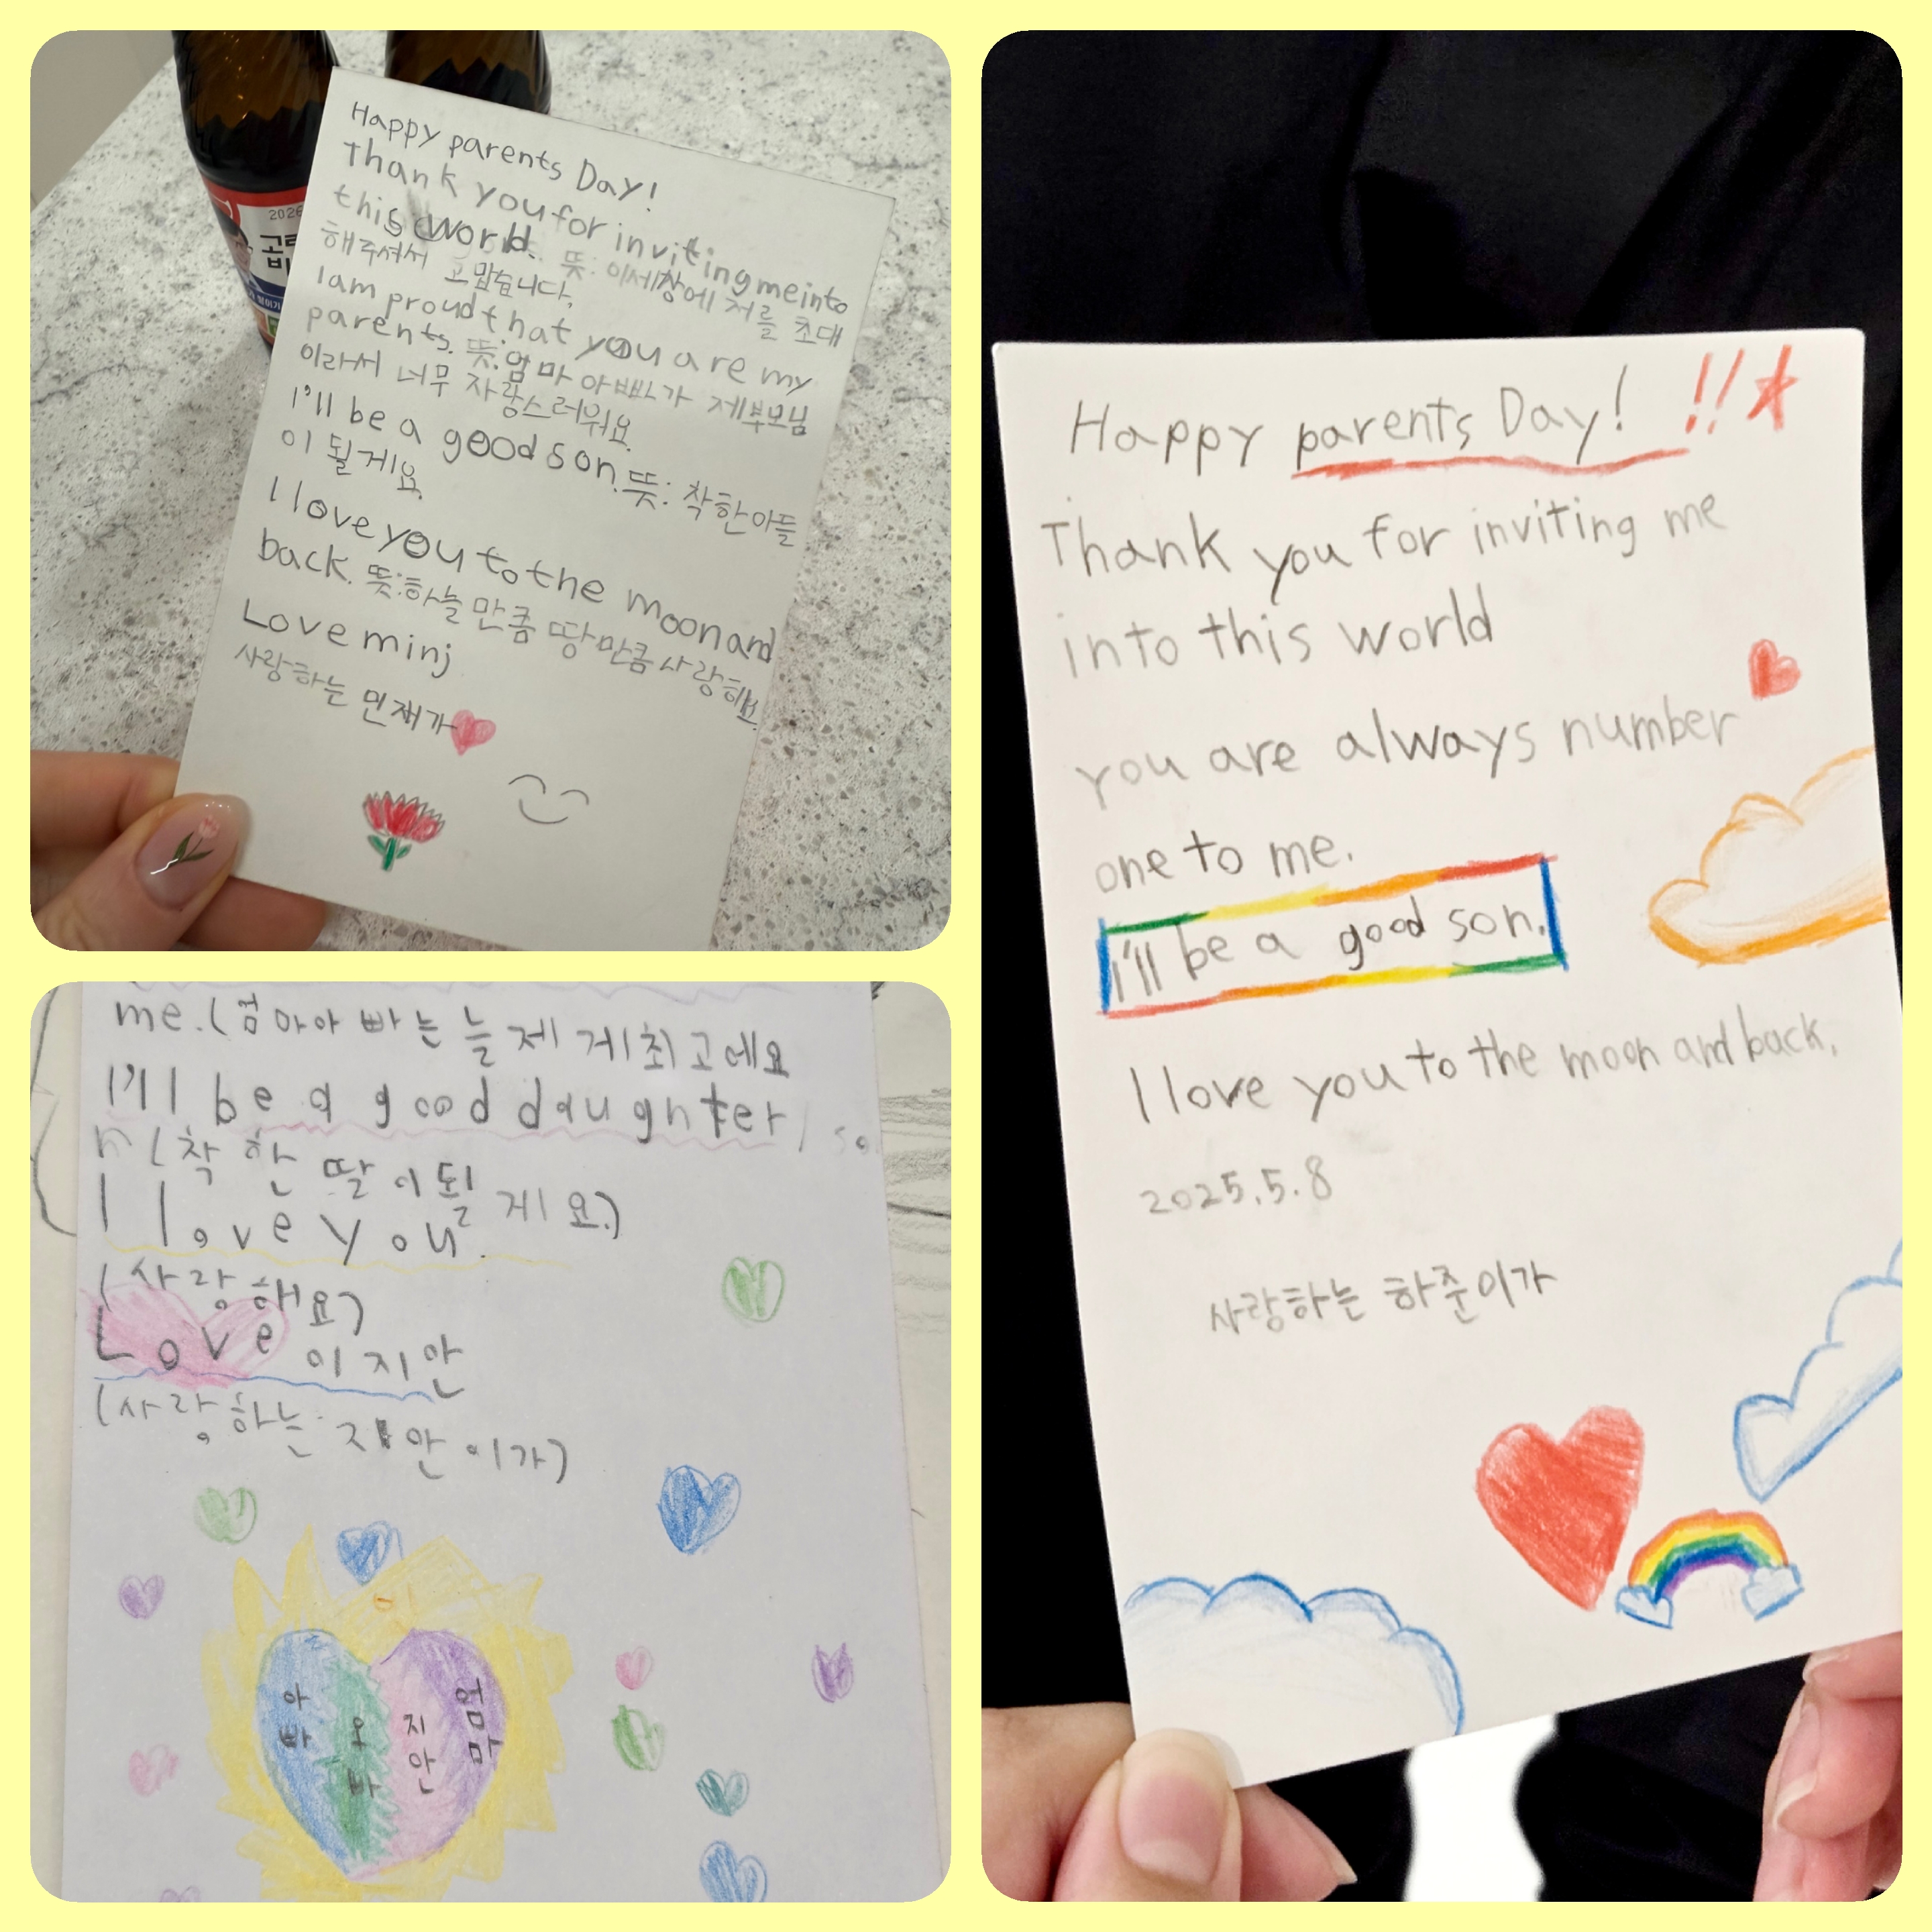 Happy parents Day!
Thank you for inviting me into
this world. 뜻: 이세상에 저를 초대
해주셔서 고맙습니다,
I am proud that you are my
parents. 뜻: 엄마 아빠가 제부모님
이라서 너무 자랑스러워요.
I'll be a good son. 뜻: 착한아들
이 될게요.
I love you to the moon and
back. 뜻: 하늘만큼 땅만큼 사랑해요
Love minj
사랑하는 민재가
2026
me. (엄마아빠는 늘 제게최고에요
I'll be a good daughter / so
n (착한 딸이될게요.)
I love you.
(사랑해요)
Love 이지안
(사랑하는 지안이가)
아빠
오빠
지안
엄마
Happy parents Day! !!
Thank you for inviting me
into this world
you are always number
one to me.
I'll be a good son.
I love you to the moon and back.
2025.5.8
사랑하는 하준이가